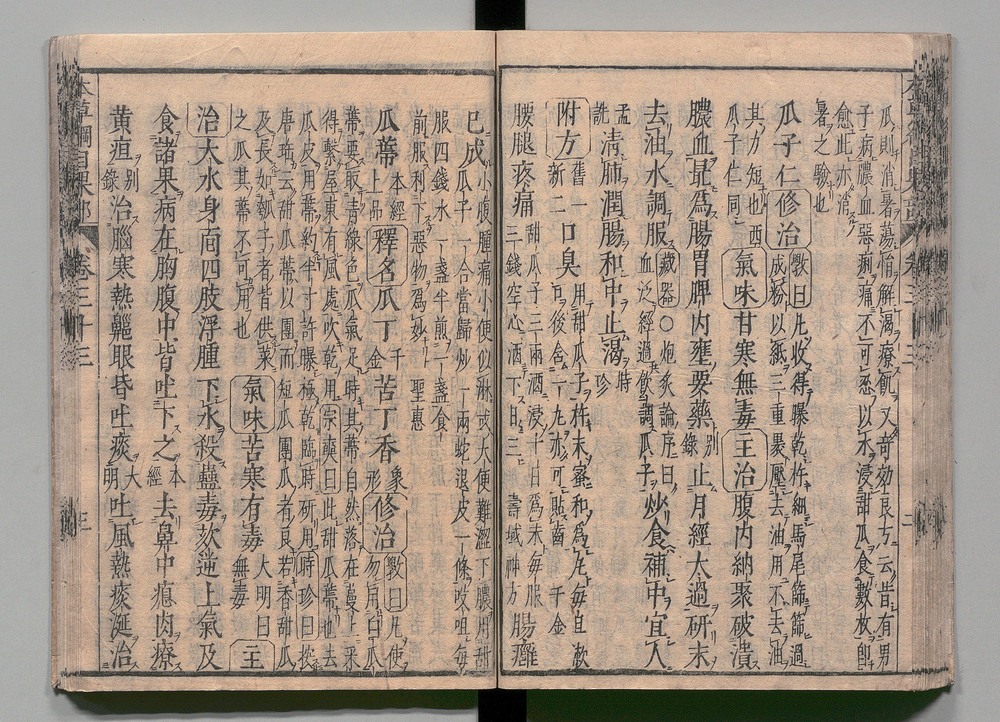 瓜則消暑蕩悁解渴療飢又奇效良方云昔有男
子病膿血惡痢痛不可忍以水浸甜瓜食數枚卽
愈此亦消
暑之驗也
瓜子仁修治斅曰凡收得曝乾杵細馬尾篩篩過
成粉以紙三重裹壓去油用不去油
其力短也西
瓜子仁同氣味甘寒無毒主治腹內納聚破潰
膿血最爲腸胃脾內壅要藥別錄止月經大過研末
去油水調服藏器〇炮炙論序曰
血泛經過飲調瓜子炒食補中宜人
孟詵淸肺潤腸和中止渴時珍
附方舊一新二口臭用甜瓜子杵末蜜和爲丸每旦漱
口後含一丸亦可貼齒千金
腰腿疼痛甜瓜子三兩酒浸十日爲末每服
三錢空心酒下日三壽域神方腸癰
已成小腹腫痛小便似淋或大便難澀下膿用甜
瓜子一合當歸炒一兩蛇退皮一條㕮咀每
服四錢水一盞半煎一盞食
前服利下惡物爲妙聖惠
瓜蒂本經上品釋名瓜丁千金苦丁香象形修治斅曰凡使勿用白瓜
蒂要取靑綠色瓜氣足時其蒂自然落在蔓上采
得繫屋東有風處吹乾用宗奭曰此甜瓜蒂也去
瓜皮用蒂約半寸許曝極乾臨時研用時珍曰按
唐瑤云甜瓜蒂以團而短瓜團瓜者良若香甜瓜
及長如瓠子者皆供菜
之瓜其蒂不可用也氣味苦寒有毒大明曰無毒主
治大水身面四肢浮腫下水殺蠱毒欬逆上氣及
食諸果病在胸腹中皆吐下之本經去鼻中瘜肉療
黃疸別錄治腦寒熱齆眼昏吐痰大明吐風熱痰涎治
本草綱目果部
卷三十三